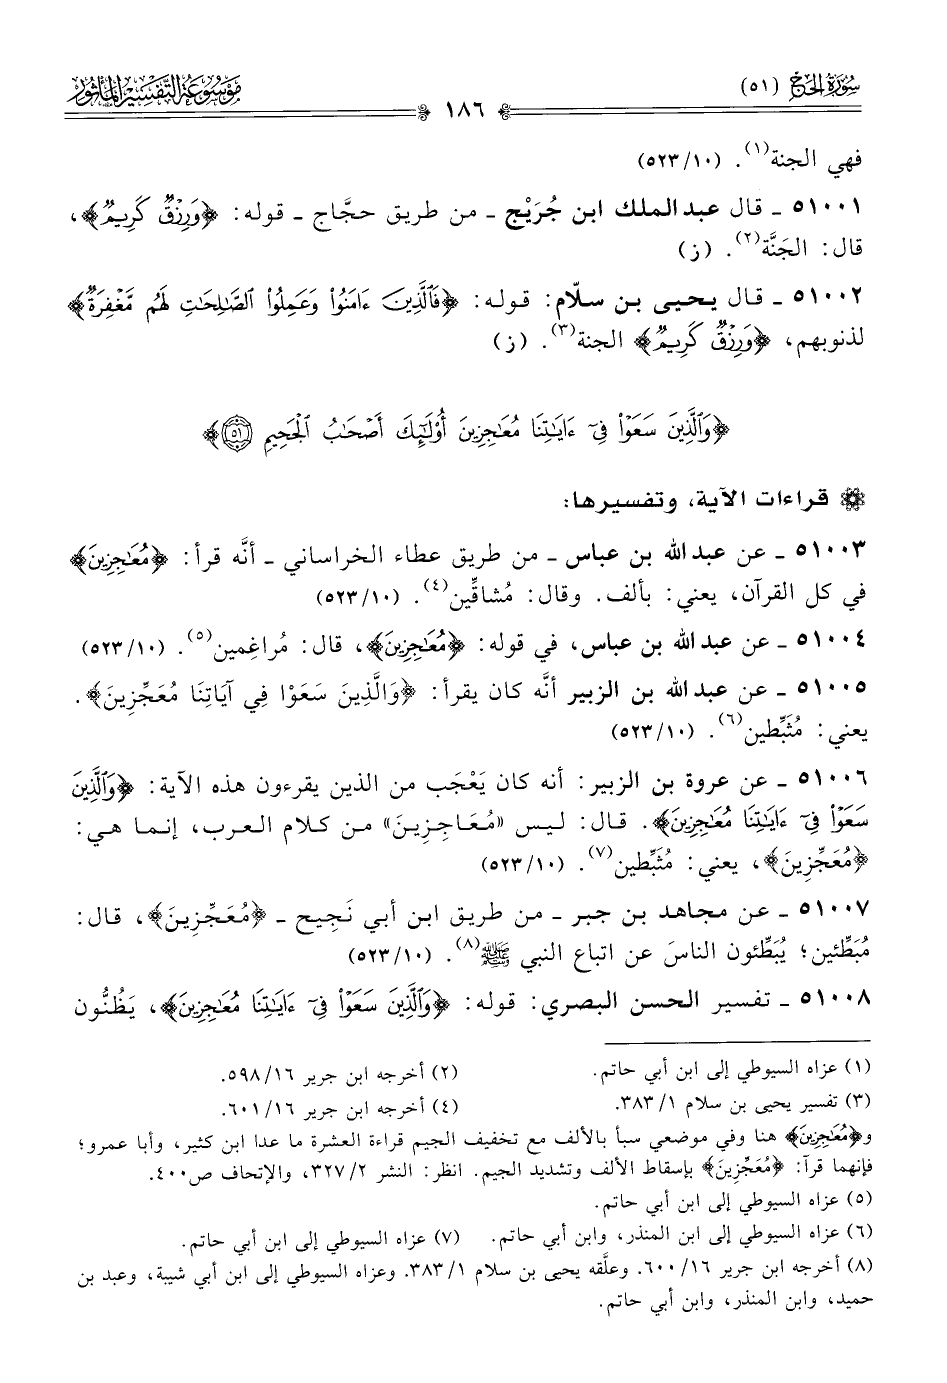 سُورَةُ الحَجِّ (٥١)
١٨٦
مَوْسُوعَةُ التَّفْسِيرِ المَأْثُورِ
فهي الجنة(١). (١٠/٥٢٣)
٥١٠٠١ ـ قال عبد الملك ابن جُرَيْج ـ من طريق حجَّاج ـ قوله: ﴿وَرِزْقٌ كَرِيمٌ﴾،
قال: الجَنَّة(٢). (ز)
٥١٠٠٢ ـ قال يحيى بن سلّام: قوله: ﴿فَٱلَّذِينَ ءَامَنُوا۟ وَعَمِلُوا۟ ٱلصَّٰلِحَٰتِ لَهُم مَّغْفِرَةٌ﴾
لذنوبهم، ﴿وَرِزْقٌ كَرِيمٌ﴾ الجنة(٣). (ز)
﴿وَٱلَّذِينَ سَعَوْا۟ فِىٓ ءَايَٰتِنَا مُعَٰجِزِينَ أُو۟لَٰٓئِكَ أَصْحَٰبُ ٱلْجَحِيمِ ٥١﴾
قراءات الآية، وتفسيرها:
٥١٠٠٣ ـ عن عبد الله بن عباس ـ من طريق عطاء الخراساني ـ أنَّه قرأ: ﴿مُعَٰجِزِينَ﴾
في كل القرآن، يعني: بألف. وقال: مُشاقِّين(٤). (١٠/٥٢٣)
٥١٠٠٤ ـ عن عبد الله بن عباس، في قوله: ﴿مُعَٰجِزِينَ﴾، قال: مُراغِمين(٥). (١٠/٥٢٣)
٥١٠٠٥ ـ عن عبد الله بن الزبير أنَّه كان يقرأ: ﴿وَالَّذِينَ سَعَوْا فِي آيَاتِنَا مُعَجِّزِينَ﴾.
يعني: مُثَبِّطين(٦). (١٠/٥٢٣)
٥١٠٠٦ ـ عن عروة بن الزبير: أنه كان يَعْجَب من الذين يقرءون هذه الآية: ﴿وَٱلَّذِينَ
سَعَوْا۟ فِىٓ ءَايَٰتِنَا مُعَٰجِزِينَ﴾. قال: ليس «مُعَاجِزِينَ» من كلام العرب، إنما هي:
﴿مُعَجِّزِينَ﴾، يعني: مُثَبِّطين(٧). (١٠/٥٢٣)
٥١٠٠٧ ـ عن مجاهد بن جبر ـ من طريق ابن أبي نَجِيح ـ ﴿مُعَجِّزِينَ﴾، قال:
مُبَطِّئين؛ يُبَطِّئون الناسَ عن اتباع النبي ﷺ(٨). (١٠/٥٢٣)
٥١٠٠٨ ـ تفسير الحسن البصري: قوله: ﴿وَٱلَّذِينَ سَعَوْا۟ فِىٓ ءَايَٰتِنَا مُعَٰجِزِينَ﴾، يَظُنُّون
(١) عزاه السيوطي إلى ابن أبي حاتم. (٢) أخرجه ابن جرير ١٦/٥٩٨.
(٣) تفسير يحيى بن سلام ١/٣٨٣. (٤) أخرجه ابن جرير ١٦/٦٠١.
و﴿مُعَٰجِزِينَ﴾ هنا وفي موضعي سبأ بالألف مع تخفيف الجيم قراءة العشرة ما عدا ابن كثير، وأبا عمرو؛
فإنهما قرآ: ﴿مُعَجِّزِينَ﴾ بإسقاط الألف وتشديد الجيم. انظر: النشر ٢/٣٢٧، والإتحاف ص٤٠٠.
(٥) عزاه السيوطي إلى ابن أبي حاتم.
(٦) عزاه السيوطي إلى ابن المنذر، وابن أبي حاتم. (٧) عزاه السيوطي إلى ابن أبي حاتم.
(٨) أخرجه ابن جرير ١٦/٦٠٠. وعلَّقه يحيى بن سلام ١/٣٨٣. وعزاه السيوطي إلى ابن أبي شيبة، وعبد بن
حميد، وابن المنذر، وابن أبي حاتم.